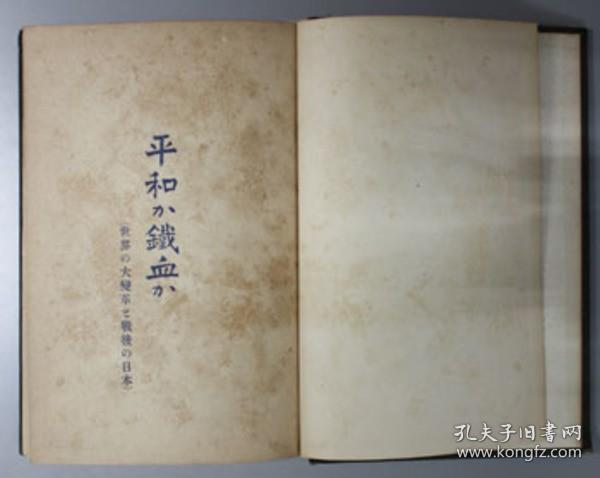 平和か鐵血か
(世界の大變革と戰後の日本)
孔夫子旧書网
www.kongfz.com